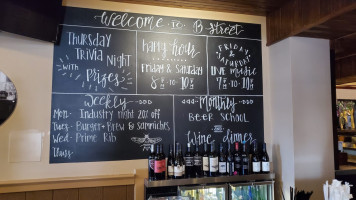 Welcome to B Street
Thursday
Trivia Night
with
Prizes
happy hour
Friday & Saturday
8 to 10
Friday &
Saturday
live music
7 to 10
Weekly
Mon: Industry night 20% off
Tues: Burger + Brew & sammiches
Wed: Prime Rib
Thurs:
Monthly
Beer School
Wine dinners